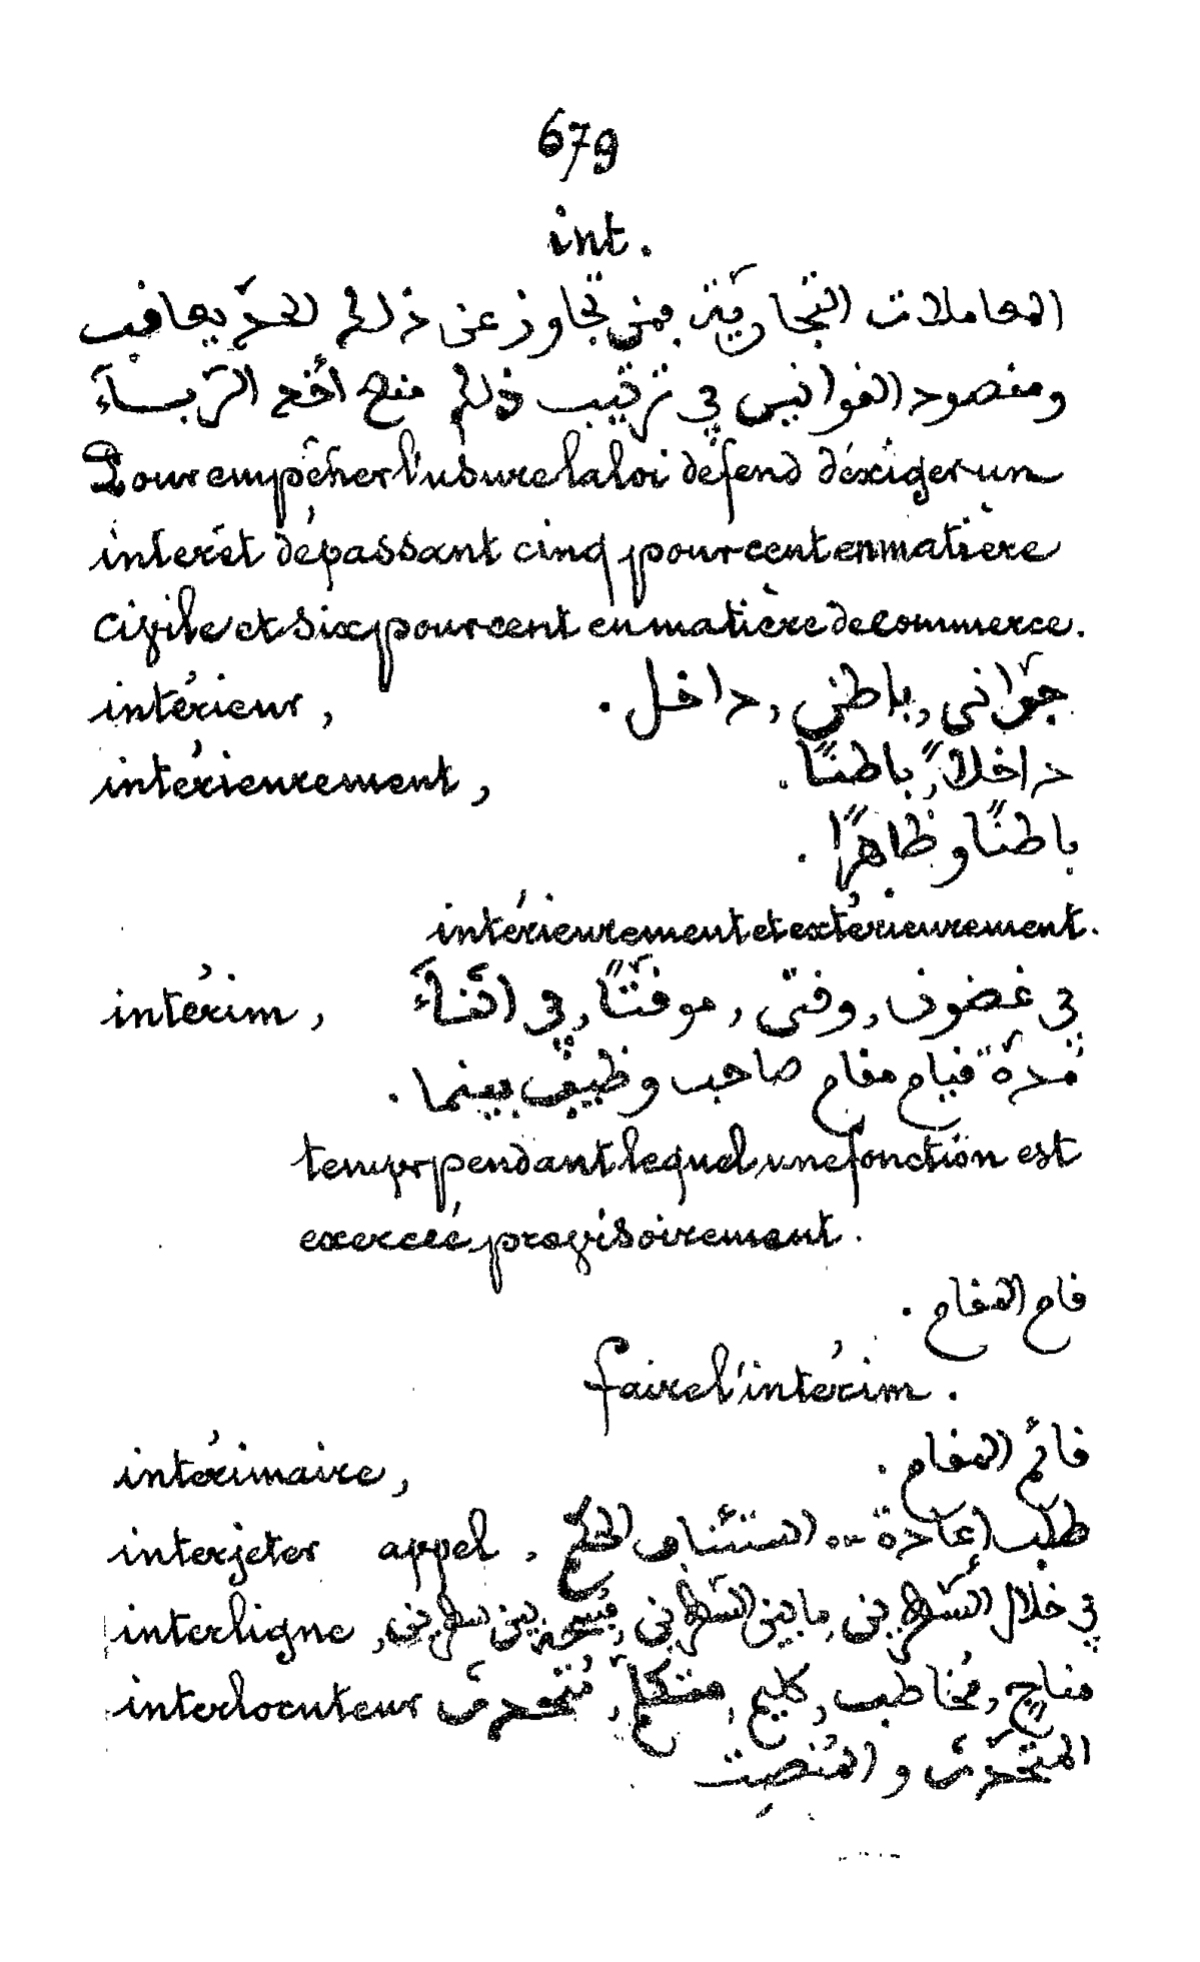 679
int.
المعاملات التجاريّة فمن تجاوز عن ذلك الحدّ يعاقب
ومقصود القوانين في ترتيب ذلك منع أخذ الرّبــآء
Pour empêcher l'usure la loi défend d'éxiger un
intérêt dépassant cinq pour cent en matière
civile et six pour cent en matière de commerce.
intérieur, جوّاني, باطني, داخل.
intérieurement, داخلاً, باطنًا.
باطنًا وظاهرًا.
intérieurement et extérieurement.
intérim, في غضون, وقتي, موقّتًا, في اثنآء
مُدّة قيام مقام صاحب وظيف بينما.
temps pendant lequel une fonction est
exercée provisoirement.
قام المقام.
faire l'intérim.
intérimaire, قائم المقام.
interjeter appel, طلب إعادة ... الحكم
interligne, في خلال السّطرين, ما بين السّطرين, فسحة بين سطرين
interlocuteur مناجي, مُخاطب, كليم, متكلّم, مُتحدّث
المتحدّث و المُنصِت